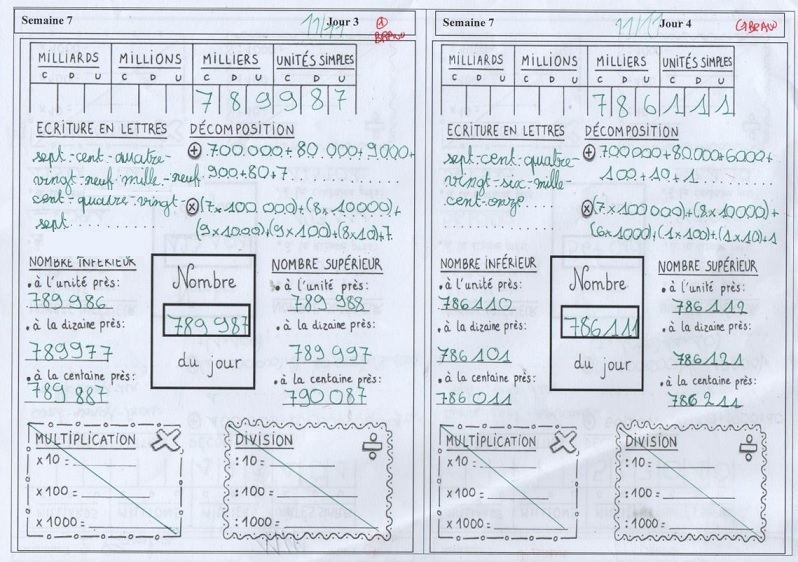 Semaine 7
11/11
Jour 3
BRAVO
MILLIARDS MILLIONS MILLIERS UNITÉS SIMPLES
C D U C D U C D U C D U
7 8 9 9 8 7
ECRITURE EN LETTRES
sept-cent-quatre-
vingt-neuf-mille-neuf
cent-quatre-vingt-
sept
DÉCOMPOSITION
+ 700 000 + 80 000 + 9000 +
900 + 80 + 7
x (7 x 100 000) + (8 x 10000) +
(9 x 1000) + (9 x 100) + (8 x 10) + 7
NOMBRE INFÉRIEUR
• à l'unité près:
789 986
• à la dizaine près:
789977
• à la centaine près:
789 887
Nombre
789 987
du jour
NOMBRE SUPÉRIEUR
• à l'unité près:
789 988
• à la dizaine près:
789 997
• à la centaine près:
790 087
MULTIPLICATION
x 10 =
x 100 =
x 1000 =
DIVISION
: 10 =
: 100 =
: 1000 =
Semaine 7
Jour 4
BRAVO
MILLIARDS MILLIONS MILLIERS UNITÉS SIMPLES
C D U C D U C D U C D U
7 8 6 1 1 1
ECRITURE EN LETTRES
sept-cent-quatre-
vingt-six-mille-
cent-onze
DÉCOMPOSITION
+ 700 000 + 80 000 + 6000 +
100 + 10 + 1
x (7 x 100 000) + (8 x 10000) +
(6 x 1000) + (1 x 100) + (1 x 10) + 1
NOMBRE INFÉRIEUR
• à l'unité près:
786110
• à la dizaine près:
786 101
• à la centaine près:
786 011
Nombre
786 111
du jour
NOMBRE SUPÉRIEUR
• à l'unité près:
786 112
• à la dizaine près:
786 121
• à la centaine près:
786 211
MULTIPLICATION
x 10 =
x 100 =
x 1000 =
DIVISION
: 10 =
: 100 =
: 1000 =